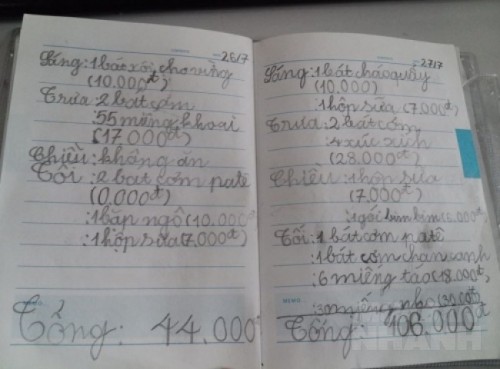 26/7
Sáng: 1 bát xôi, cho ruông
(10.000đ)
Trưa: 2 bát cơm
: 55 miếng khoai
(17.000đ)
Chiều: không ăn
Tối: 2 bát cơm patê
(0,000đ)
: 1 bắp ngô (10.000đ
: 1 hộp sữa (7,000đ)
Tổng: 44.000đ
27/7
Sáng: 1 bát cháo quẩy
(10.000)
1 hộp sữa (7.000đ)
Trưa: 2 bát cơm
: 4 xúc xích
(28.000đ)
Chiều: 1 hộp sữa
(7,000đ)
: 1 gói bim bim (6.000đ)
Tối: 1 bát cơm patê
: 1 bát cơm chan canh
: 6 miếng táo (18.000đ)
: 30 miếng nho (30.00đ)
Tổng: 106.000đ